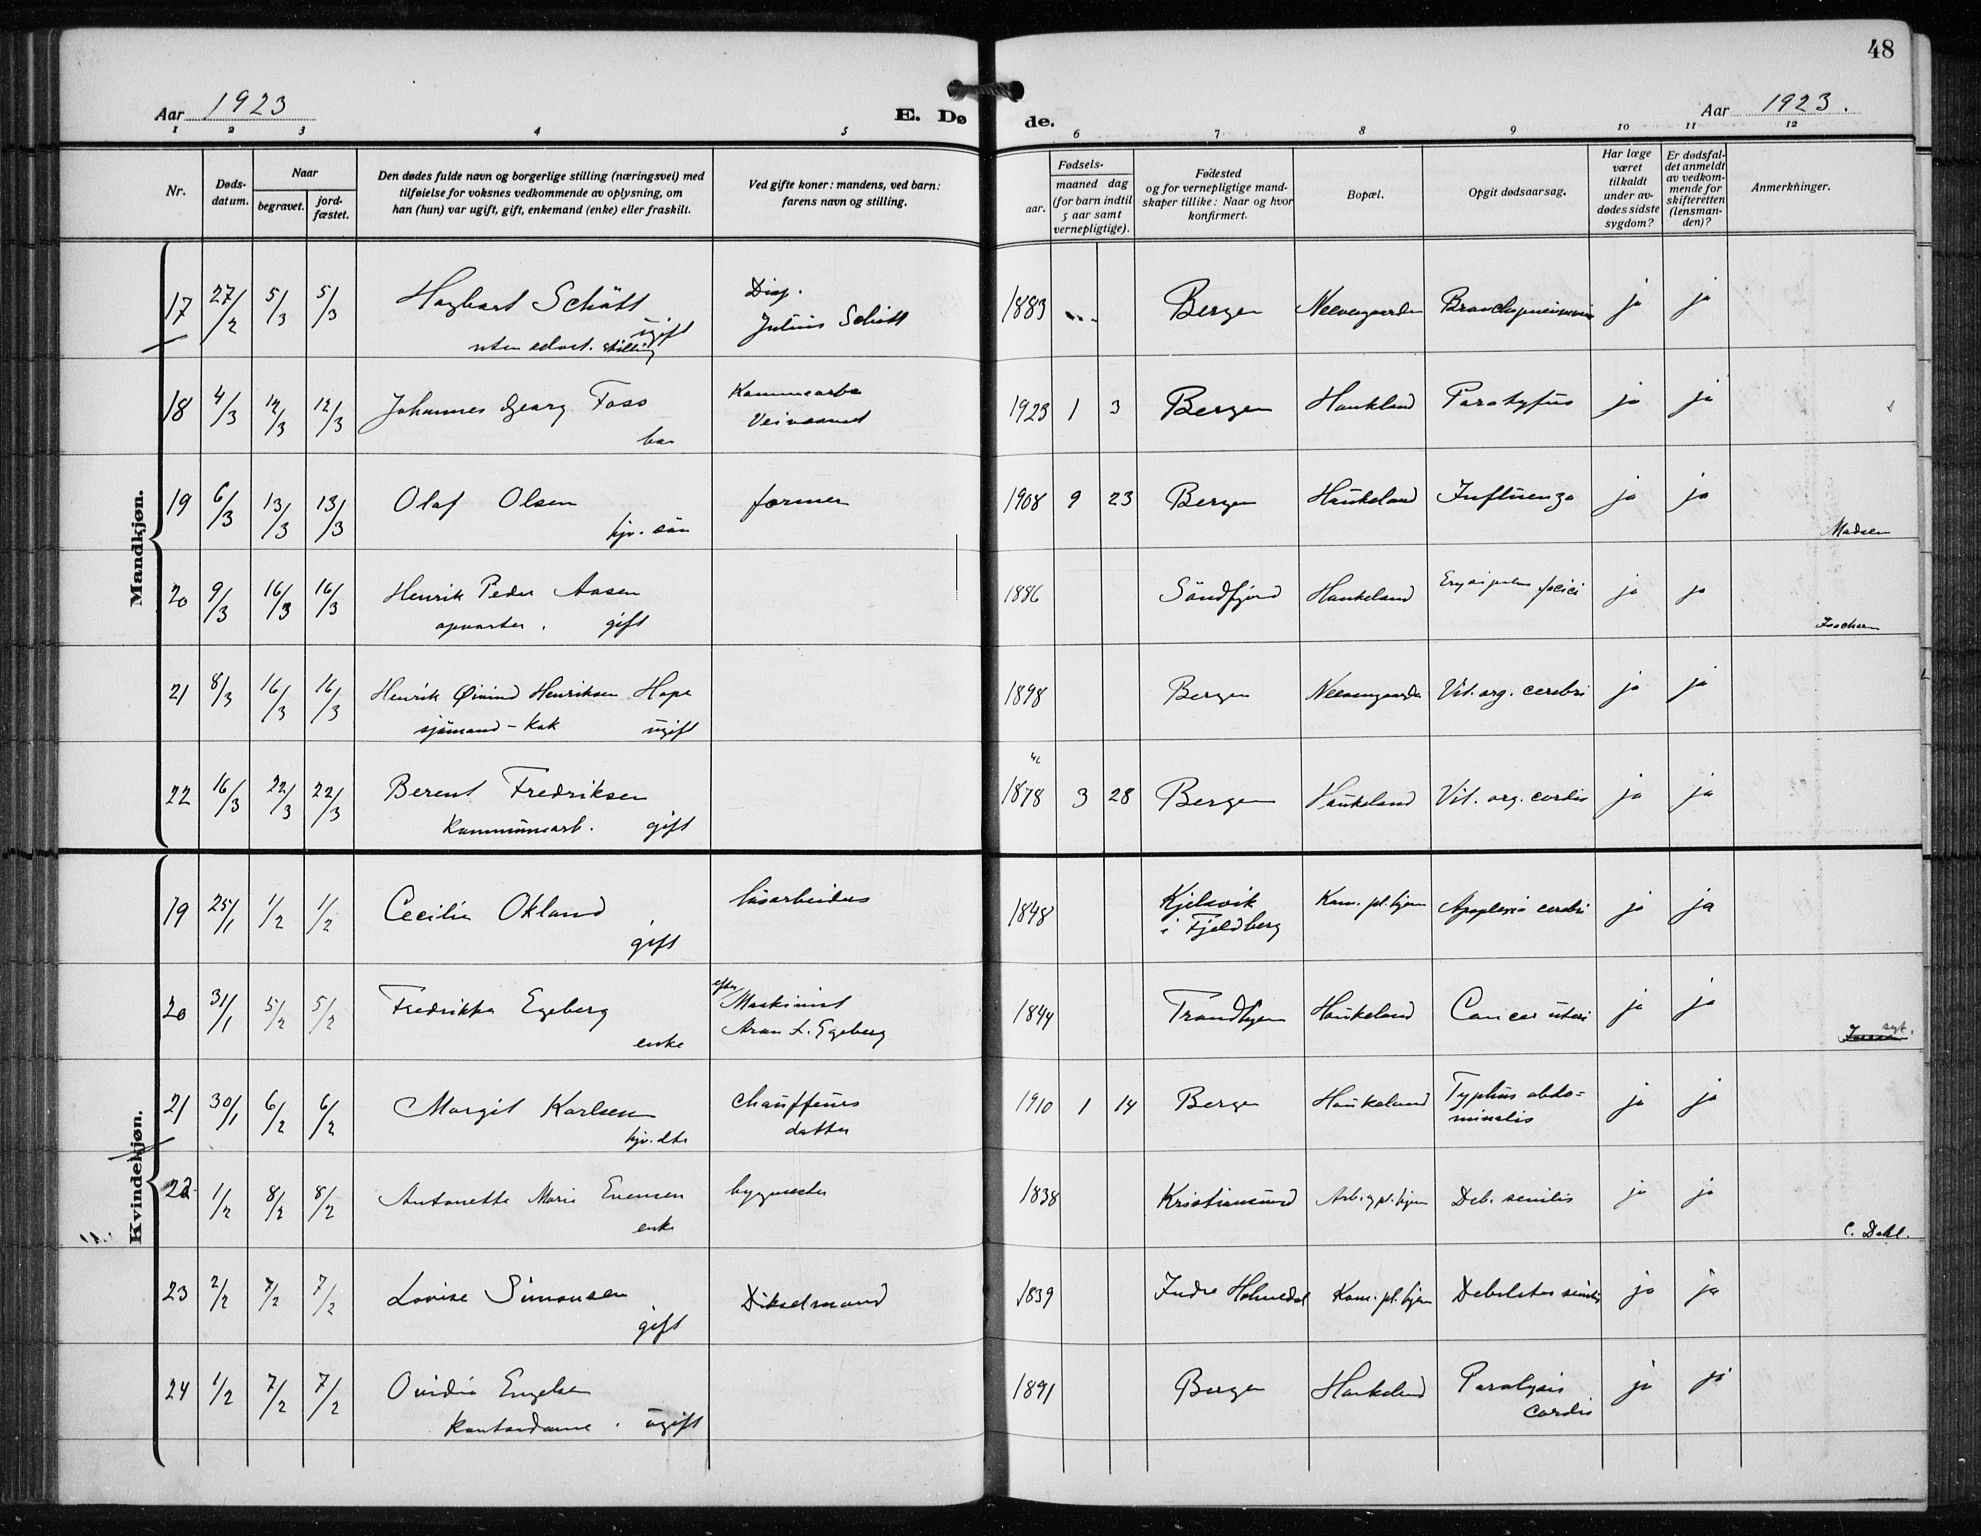 48
Aar 1923
E. Dø
de.
Aar 1923.
1 2 3 4 5 6 7 8 9 10 11 12
Nr.
Døds-
datum.
Naar
begravet.
jord-
fæstet.
Den dødes fulde navn og borgerlige stilling (næringsvei) med
tilføielse for voksnes vedkommende av oplysning, om
han (hun) var ugift, gift, enkemand (enke) eller fraskilt.
Ved gifte koner: mandens, ved barn:
farens navn og stilling.
Fødsels-
aar.
maaned dag
(for barn indtil
5 aar samt
vernepligtige).
Fødested
og for vernepligtige mand-
skaper tillike: Naar og hvor
konfirmert.
Bopæl.
Opgit dødsaarsag.
Har læge
været
tilkaldt
under av-
dødes sidste
sygdom?
Er dødsfal-
det anmeldt
av vedkom-
mende for
skifteretten
(lensman-
den)?
Anmerkninger.
Mandkjøn.
17 27/2 5/3 5/3 Hagbart Schött Disp. 1883 Bergen ja ja
Julius Schött
ugift
stilling
18 4/3 12/3 12/3 Johannes Georg Foss 1923 1 3 Bergen Haukland Paratyfus ja ja
19 6/3 13/3 13/3 Olaf Olsen former 1908 9 23 Bergen Haukeland Influenza ja ja
hjv. sön
Madsen
20 9/3 16/3 16/3 Henrik Peder Aasen 1886 Söndfjord Haukeland ja ja
opvarter. gift
Isachsen
21 8/3 16/3 16/3 Henrik Øivind Henriksen Hope 1898 Bergen Neevengaarden Vit. org. cerebri ja ja
sjömand - kok ugift
22 16/3 22/3 22/3 Berent Fredriksen 1878 3 28 Bergen Haukeland Vit. org. cordis ja ja
kommunearb. gift
Kvindekjøn.
19 25/1 1/2 1/2 Cecilie Okland lösarbeiders 1848 Kjelsvik Kom. pl. hjem Apoplexia cerebri ja ja
i Fjeldberg
gift
20 31/1 5/2 5/2 Fredrikka Egeberg efter Maskinist 1844 Trondhjem Haukeland Cancer uteri ja ja
Aron L. Egeberg
enke
21 30/1 6/2 6/2 Margit Karlsen chauffeurs 1910 1 14 Bergen Haukeland Typhus abdo=
minalis ja ja
datter
hjv. dtr
22. 1/2 8/2 8/2 Antonette Marie Evensen bygmester 1838 Kristiansund Arb. og pl. hjem Deb. senilis ja ja
enke
C. Dahl.
23 2/2 7/2 7/2 Lovise Simonsen Dikselmand 1839 Indre Holmedal Kom. pl. hjem Debilitas senilis ja ja
gift
24 1/2 7/2 7/2 Ovidia Engelsen 1891 Bergen Haukeland Paralysis ja ja
cordis
kontordame. ugift